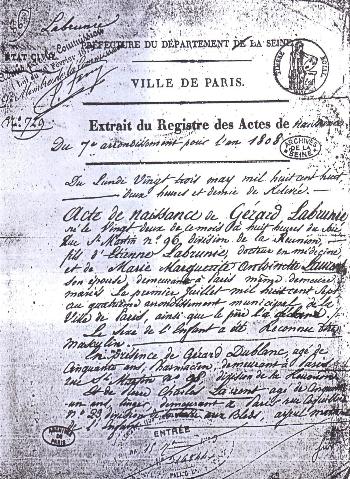 Labrunie
PRÉFECTURE DU DÉPARTEMENT DE LA SEINE
ÉTAT CIVIL
Commission
VILLE DE PARIS.
N° 729
Extrait du Registre des Actes de naissance
du 7e arrondissement pour l'an 1808
ARCHIVES DE LA SEINE
Du Lundi Vingt trois may mil huit cent huit
deux heures et demie de Relevée
Acte de naissance de Gérard Labrunie
né le Vingt deux de ce mois à huit heures du soir
Rue St Martin n° 96, division de la Réunion,
fils d'Étienne Labrunie, docteur en médecine
et de Marie Marguerite Antoinette Laurent
son épouse, demeurants à Paris même demeure
mariés le premier Juillet mil huit cent sept
au quatrième arrondissement municipal de la
Ville de Paris, ainsi que le père l'a déclaré.
Le sexe de l'Enfant a été Reconnu être
masculin.
En Présence de Gérard Dublanc, age de
Cinquante ans, Pharmacien, demeurant à Paris
rue St Martin n° 98, division de la Réunion
Et de Pierre Charles Laurent age de Cinquante
un ans, linger demeurant à Paris rue Coquillère
n° 23 division de la halle aux Bleds, ayeul maternel
de l'Enfant
ENTRÉE